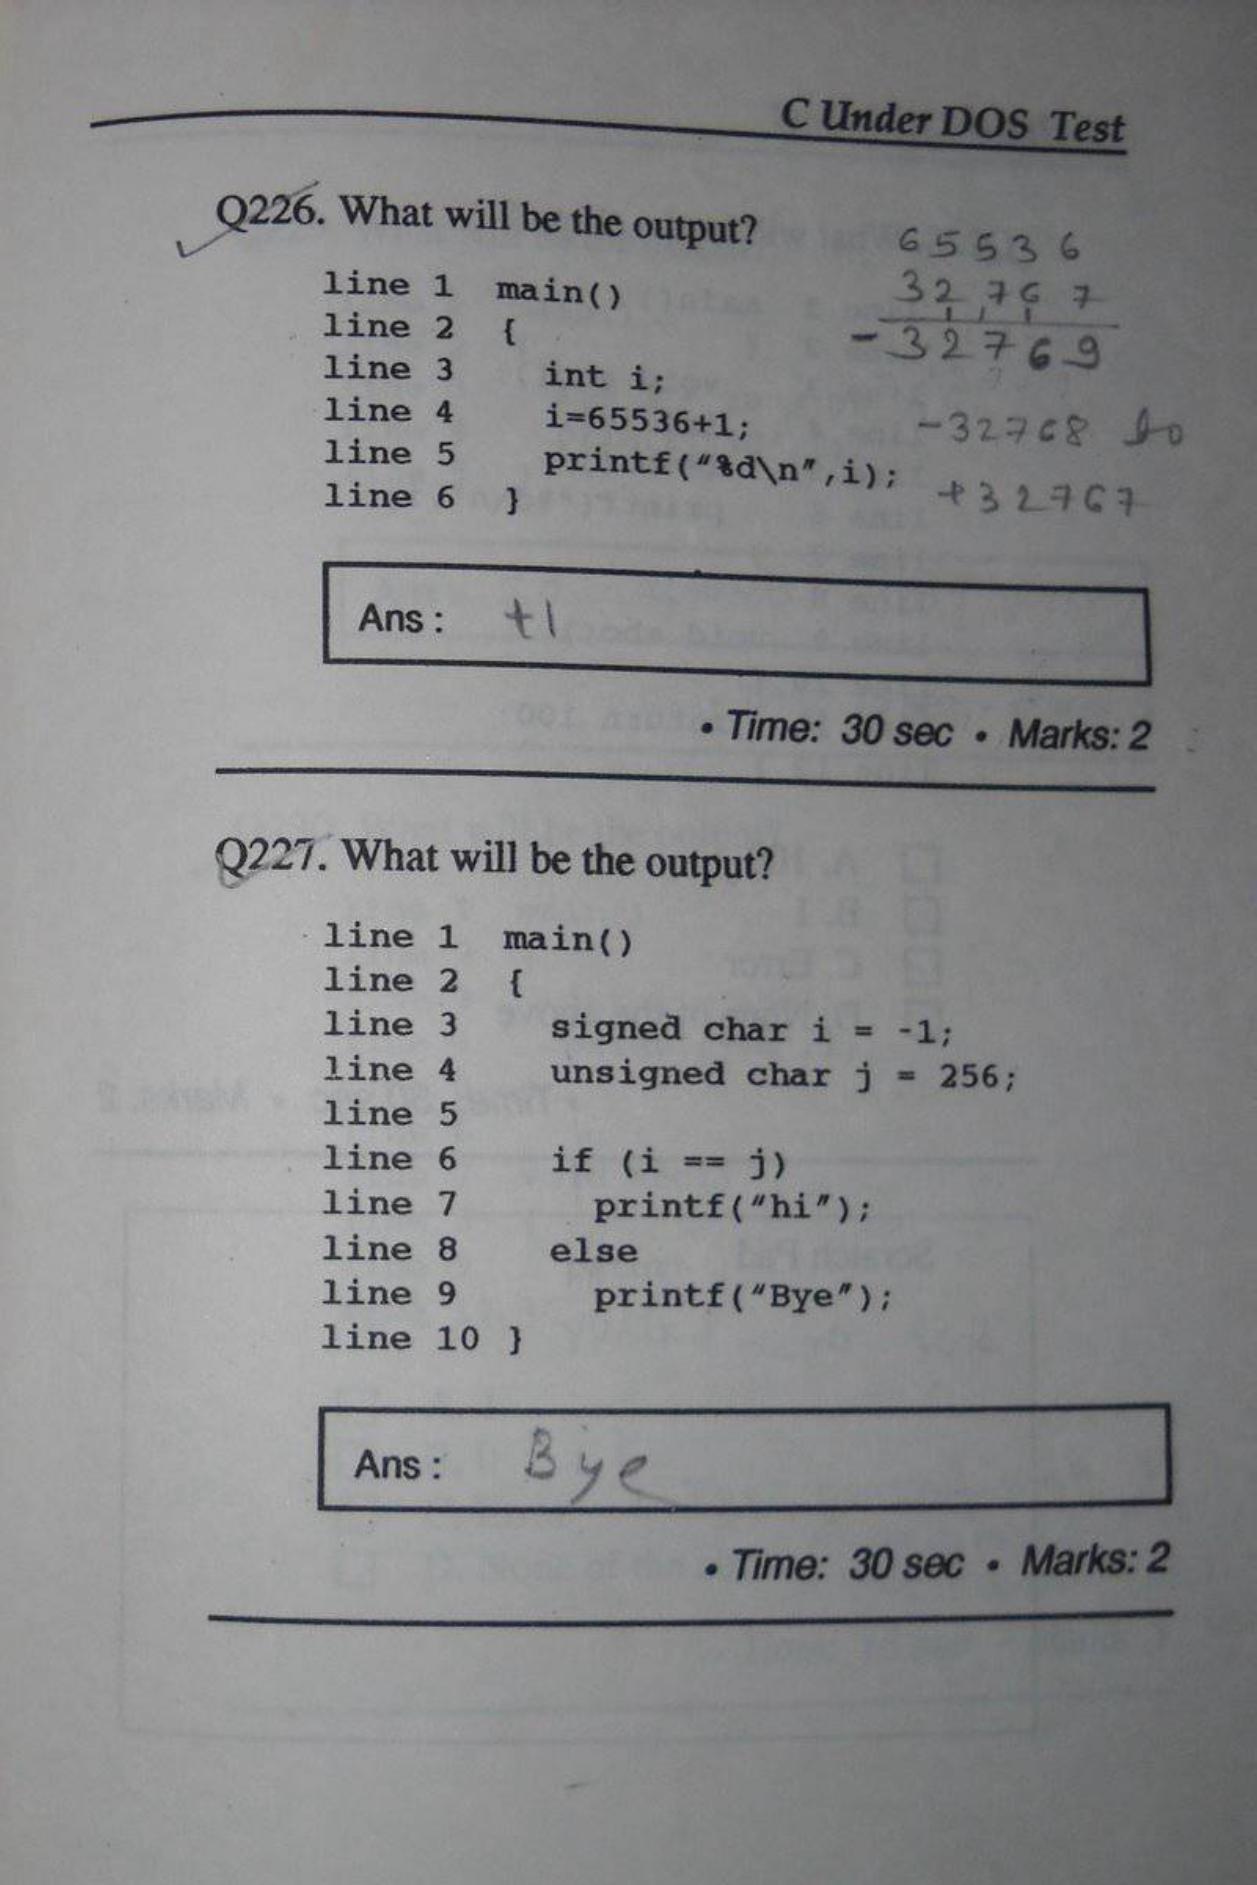 C Under DOS Test
Q226. What will be the output?
65536
32767
-32769
line 1 main()
line 2 {
line 3 int i;
line 4 i=65536+1;
line 5 printf("%d\n",i);
line 6 }
-32768 to
+32767
Ans : +1
• Time: 30 sec • Marks: 2
Q227. What will be the output?
line 1 main()
line 2 {
line 3 signed char i = -1;
line 4 unsigned char j = 256;
line 5
line 6 if (i == j)
line 7 printf("hi");
line 8 else
line 9 printf("Bye");
line 10 }
Ans : Bye
• Time: 30 sec • Marks: 2